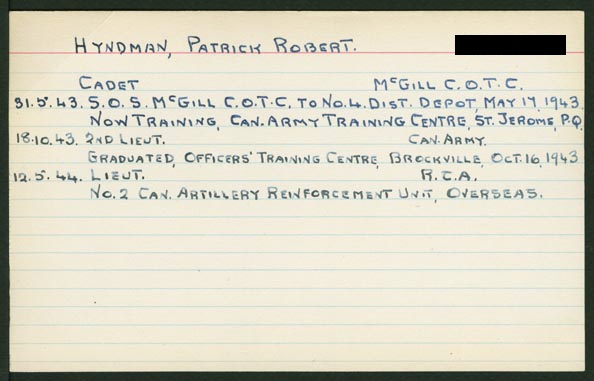 HYNDMAN, PATRICK ROBERT.
CADET McGILL C.O.T.C.
31.5.43. S.O.S. McGILL C.O.T.C. TO No.4. DIST. DEPOT, MAY 17, 1943.
NOW TRAINING, CAN. ARMY TRAINING CENTRE, ST. JEROME, P.Q.
18.10.43. 2ND LIEUT. CAN. ARMY.
GRADUATED, OFFICERS' TRAINING CENTRE, BROCKVILLE, OCT. 16, 1943
12.5.44. LIEUT. R.C.A.
No. 2 CAN. ARTILLERY REINFORCEMENT UNIT, OVERSEAS.